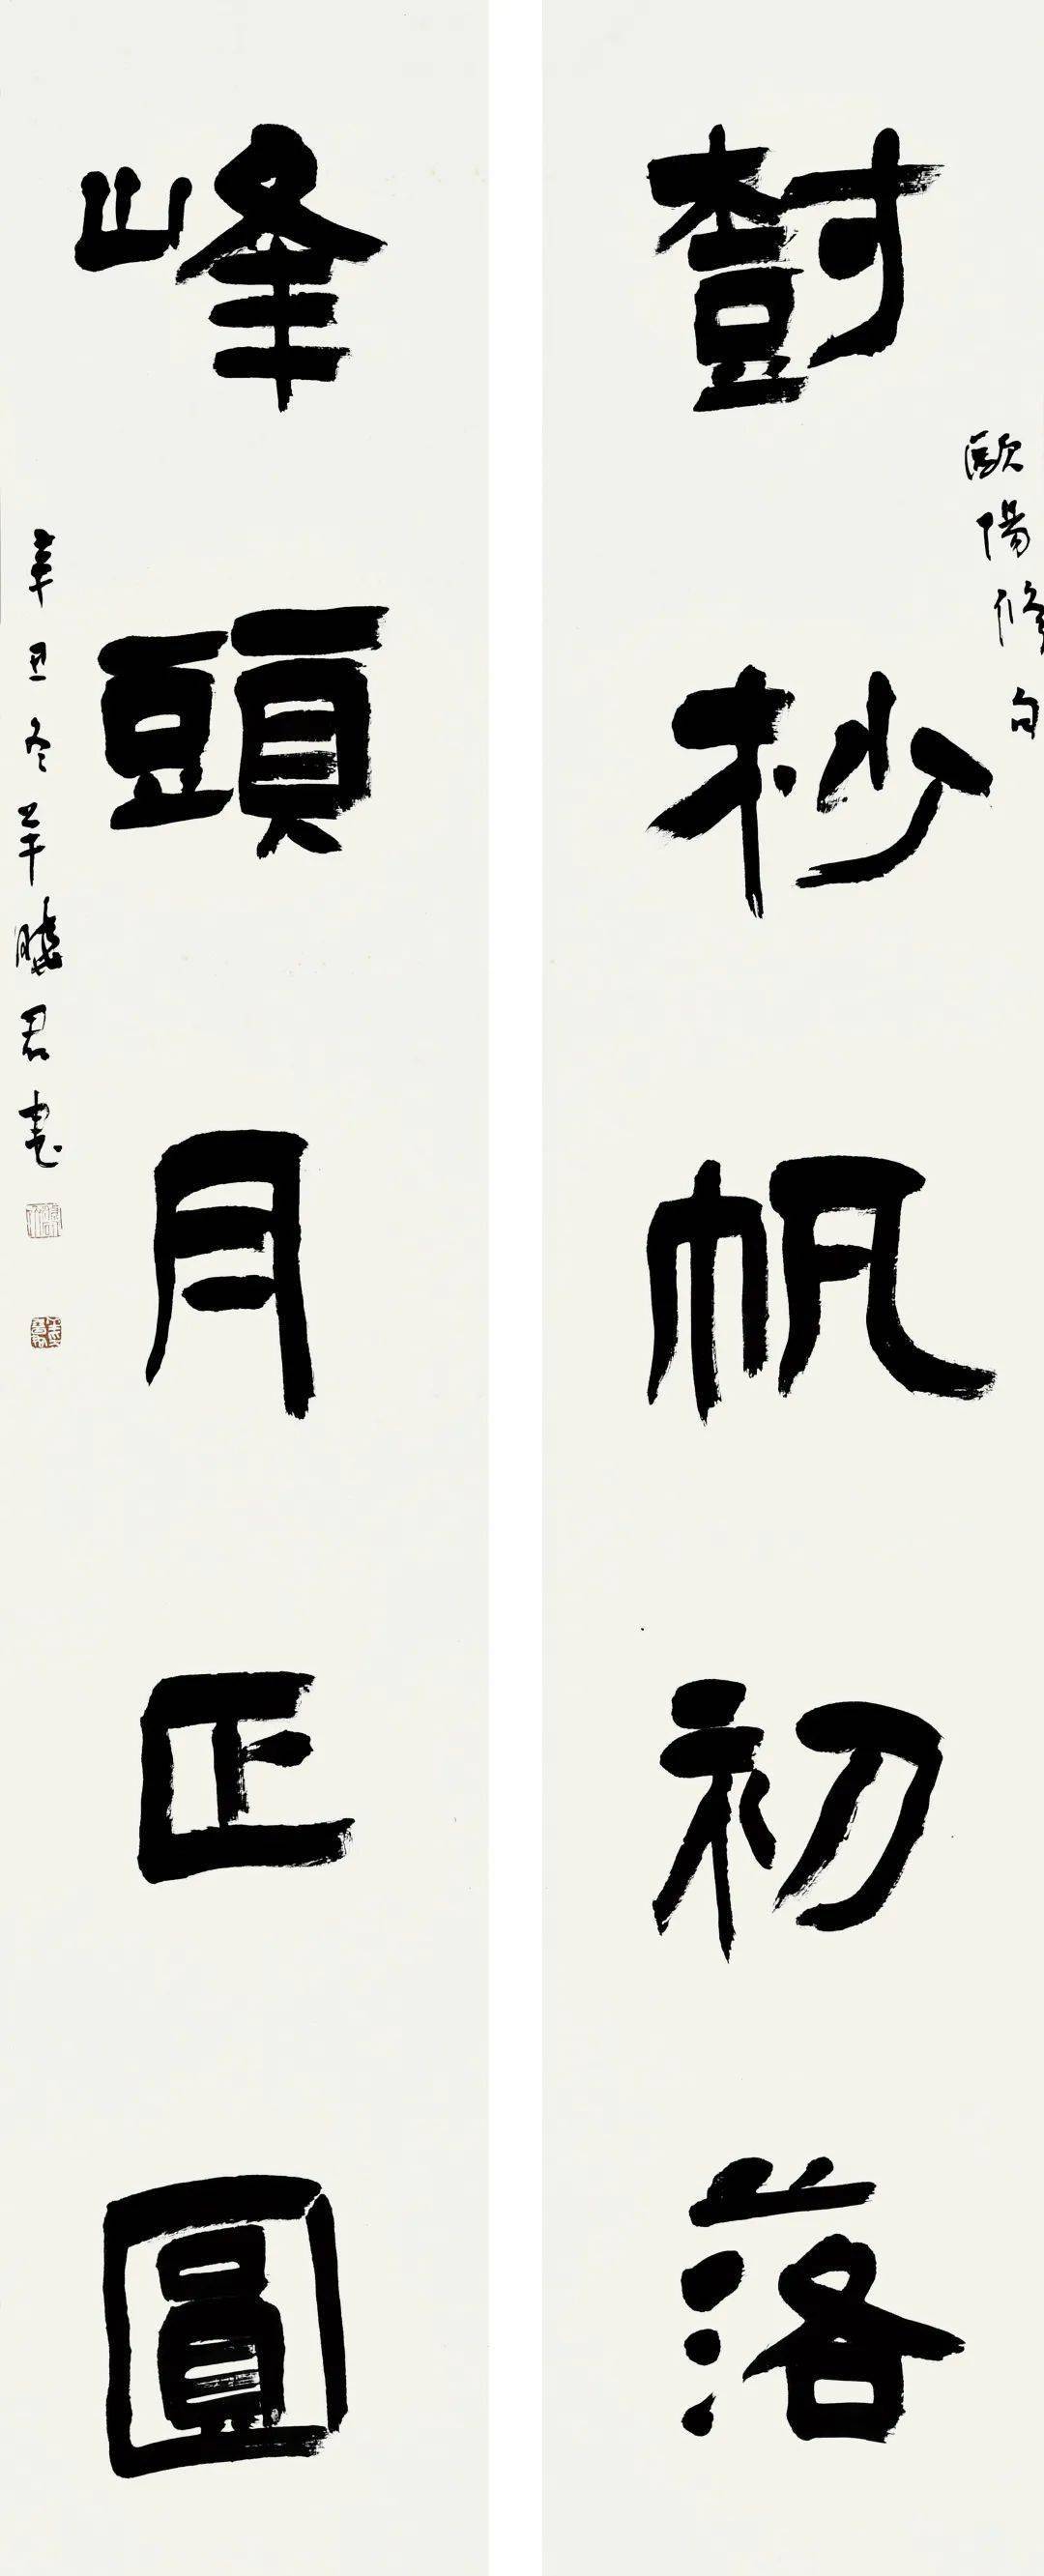 尌杪帆初落
歐陽修句
峰頭月正圓
辛丑冬羊曉君書